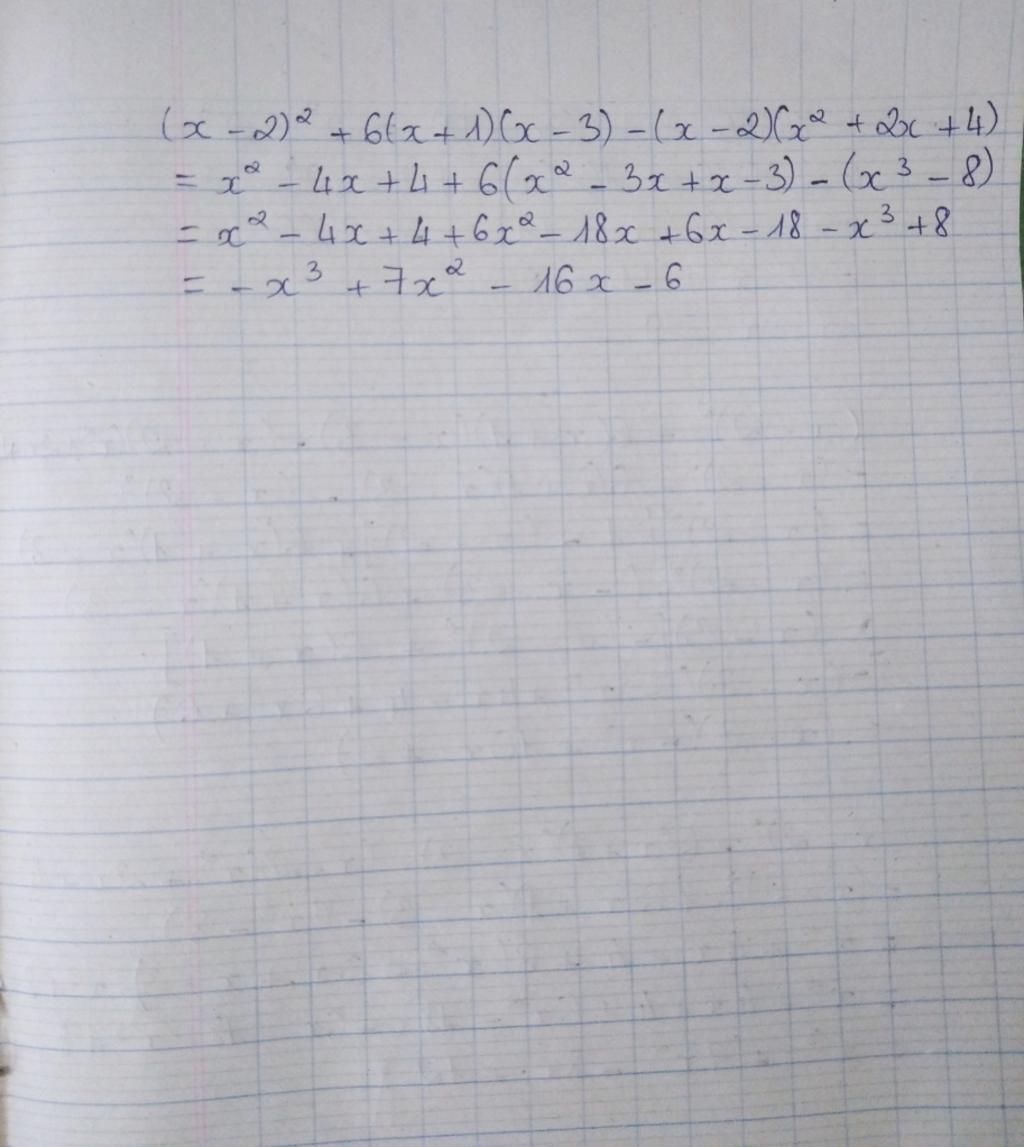 (x - 2)² + 6(x + 1)(x - 3) - (x - 2)(x² + 2x + 4)
= x² - 4x + 4 + 6(x² - 3x + x - 3) - (x³ - 8)
= x² - 4x + 4 + 6x² - 18x + 6x - 18 - x³ + 8
= - x³ + 7x² - 16x - 6